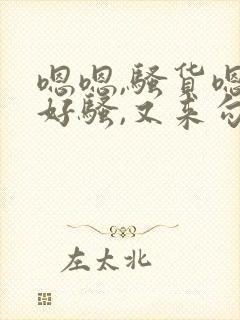 嗯嗯,骚货嗯
好骚,又来勾
左太北